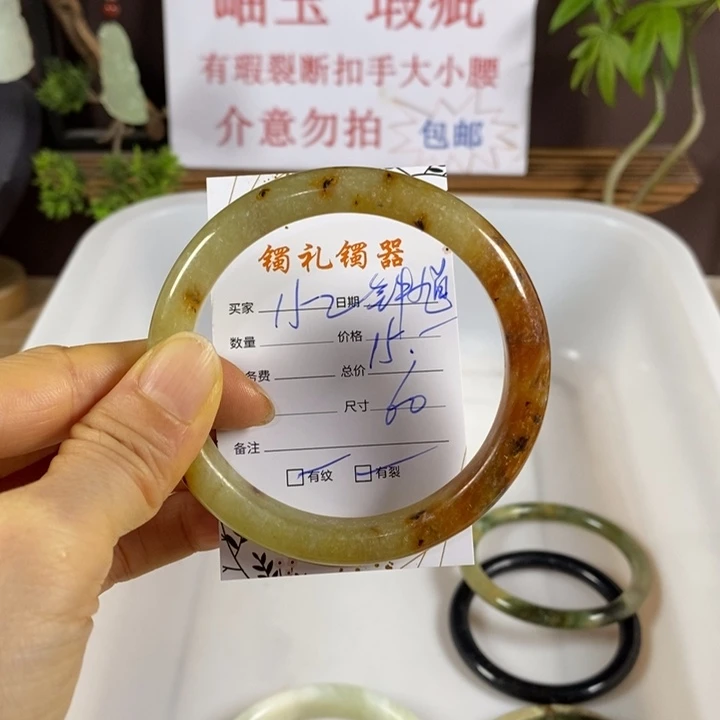 岫玉 瑕疵
有瑕裂断扣手大小腰
介意勿拍 包邮
镯礼镯器
买家 日期
数量 价格 15.-
务费 总价
尺寸 60
备注
有纹 有裂